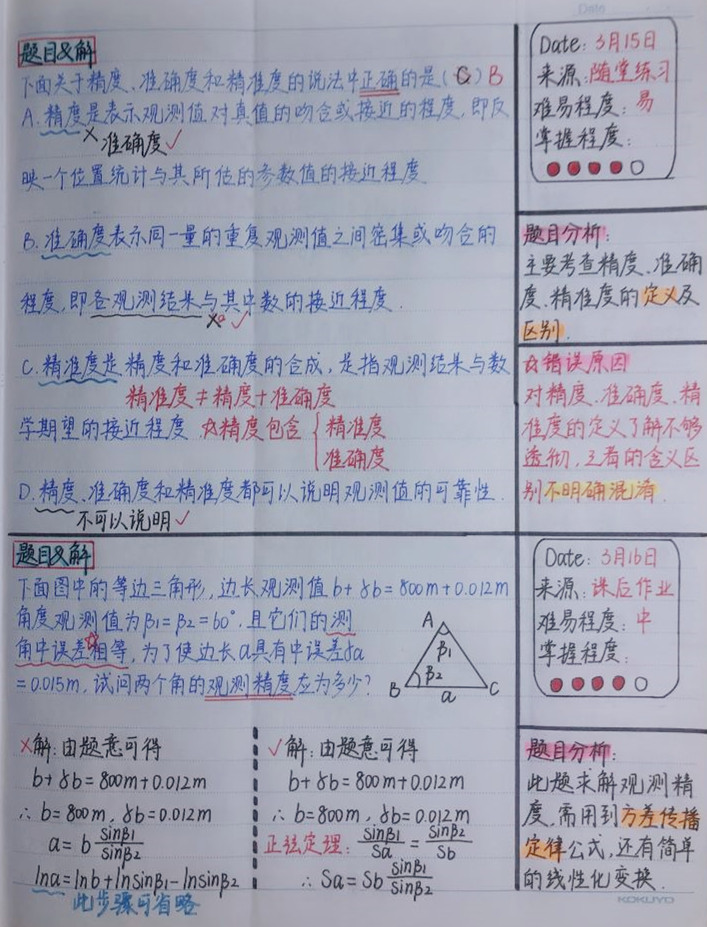 Date
题目&解
下面关于精度、准确度和精准度的说法中正确的是(C)B
A.精度是表示观测值对真值的吻合或接近的程度,即反
×准确度✓
映一个位置统计与其所估的参数值的接近程度
B.准确度表示同一量的重复观测值之间密集或吻合的
程度,即各观测结果与其中数的接近程度.
C.精准度是精度和准确度的合成,是指观测结果与数
精准度≠精度+准确度
学期望的接近程度.☆精度包含{精准度
准确度
D.精度、准确度和精准度都可以说明观测值的可靠性.
不可以说明✓
Date:3月15日
来源:随堂练习
难易程度:易
掌握程度:
题目分析:
主要考查精度、准确
度、精准度的定义及
区别.
☆错误原因
对精度、准确度、精
准度的定义了解不够
透彻,三者的含义区
别不明确混淆.
题目&解
下面图中的等边三角形,边长观测值b+δb=800m+0.012m
角度观测值为β1=β2=60°,且它们的测
角中误差相等,为了使边长a具有中误差δa
=0.015m,试问两个角的观测精度应为多少?
A
β1
β2
B a C
×解:由题意可得
b+δb=800m+0.012m
∴b=800m,δb=0.012m
a=b sinβ1/sinβ2
lna=lnb+lnsinβ1-lnsinβ2
此步骤可省略
✓解:由题意可得
b+δb=800m+0.012m
∴b=800m,δb=0.012m
正弦定理:sinβ1/Sa=sinβ2/Sb
∴Sa=Sb sinβ1/sinβ2
Date:3月16日
来源:课后作业
难易程度:中
掌握程度:
题目分析:
此题求解观测精
度,需用到方差传播
定律公式,还有简单
的线性化变换.
KOKUYO